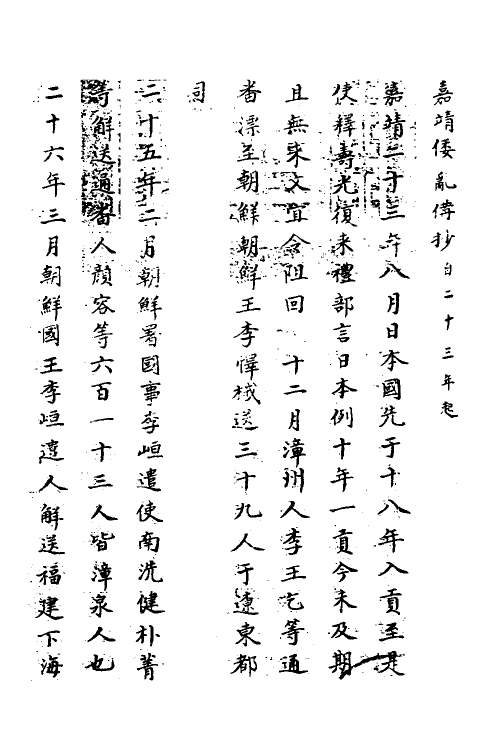 嘉靖倭亂傋抄自二十三年起
嘉靖二十三年八月日本國先于十八年入貢至是
使釋壽光復来禮部言日本例十年一貢今未及期
且無来文宜令阻回 十二月漳州人李王乞等通
番漂至朝鮮朝鮮王李懌械送三十九人于遼東都
司
二十五年二月朝鮮署國事李峘遣使南洗健朴菁
等解送通番人顔容等六百一十三人皆漳泉人也
二十六年三月朝鮮國王李峘遣人解送福建下海